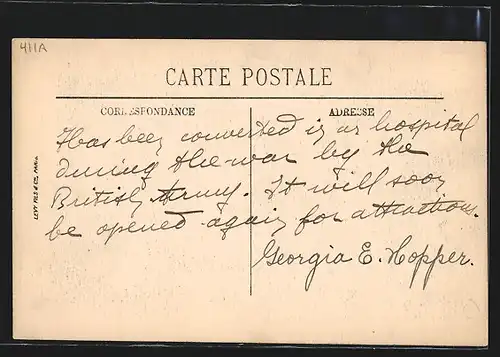 411A
CARTE POSTALE
CORRESPONDANCE
ADRESSE
Has been converted in a hospital
during the war by the
British Army. It will soon
be opened again for attractions.
Georgia E. Hopper.
LEVY FILS & Cie, PARIS